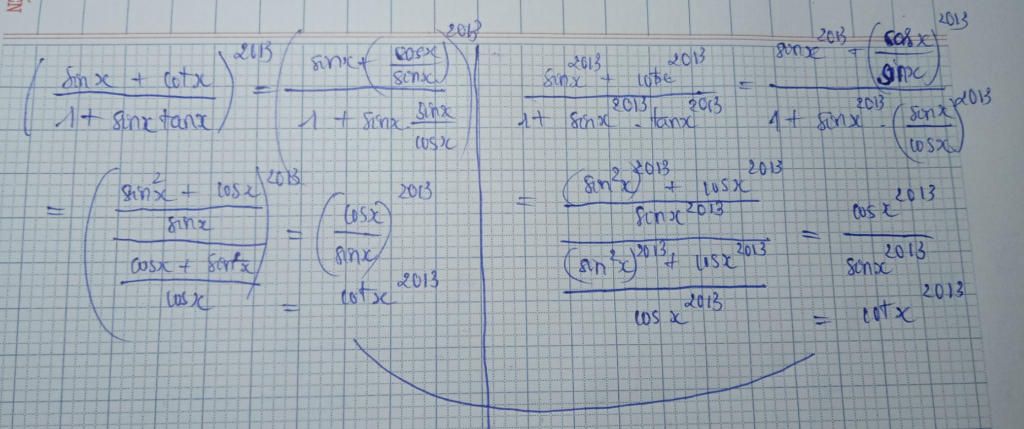 (\frac{sinx + cotx}{1 + sinx tanx})^{2013} = (\frac{sinx + (\frac{cosx}{sinx})}{1 + sinx . \frac{sinx}{cosx}})^{2013}
= (\frac{\frac{sin^2x + cosx}{sinx}}{\frac{cosx + sin^2x}{cosx}})^{2013} = (\frac{cosx}{sinx})^{2013}
= cotx^{2013}
\frac{sinx^{2013} + cotx^{2013}}{1 + sinx^{2013} . tanx^{2013}} = \frac{sinx^{2013} + (\frac{cosx}{sinx})^{2013}}{1 + sinx^{2013} . (\frac{sinx}{cosx})^{2013}}
= \frac{\frac{(sin^2x)^{2013} + cosx^{2013}}{sinx^{2013}}}{\frac{(sin^2x)^{2013} + cosx^{2013}}{cosx^{2013}}} = \frac{cosx^{2013}}{sinx^{2013}}
= cotx^{2013}